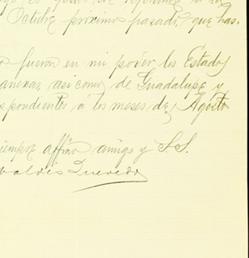 Octubre próximo pasado, que has.
fueron en mi poder los Estados
anexas, asi como de Guadalupe y
spondientes a los meses de Agosto
iempre affmo amigo y S. S.
Quevedo